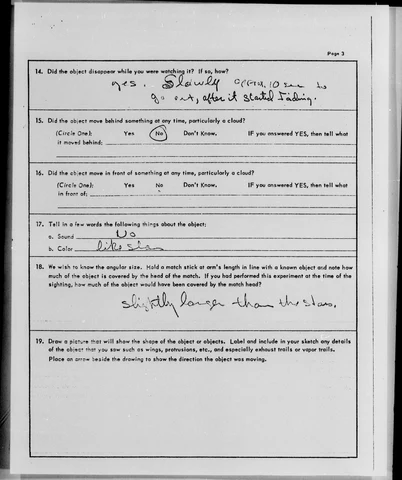 Page 3
14. Did the object disappear while you were watching it? If so, how?
yes. Slowly approx. 10 sec to
go out, after it started fading.
15. Did the object move behind something at any time, particularly a cloud?
(Circle One): Yes No Don't Know. IF you answered YES, then tell what
it moved behind:
16. Did the object move in front of something at any time, particularly a cloud?
(Circle One): Yes No Don't Know. IF you answered YES, then tell what
in front of:
17. Tell in a few words the following things about the object:
a. Sound No
b. Color like
18. We wish to know the angular size. Hold a match stick at arm's length in line with a known object and note how
much of the object is covered by the head of the match. If you had performed this experiment at the time of the
sighting, how much of the object would have been covered by the match head?
slightly larger than the stars.
19. Draw a picture that will show the shape of the object or objects. Label and include in your sketch any details
of the object that you saw such as wings, protrusions, etc., and especially exhaust trails or vapor trails.
Place an arrow beside the drawing to show the direction the object was moving.